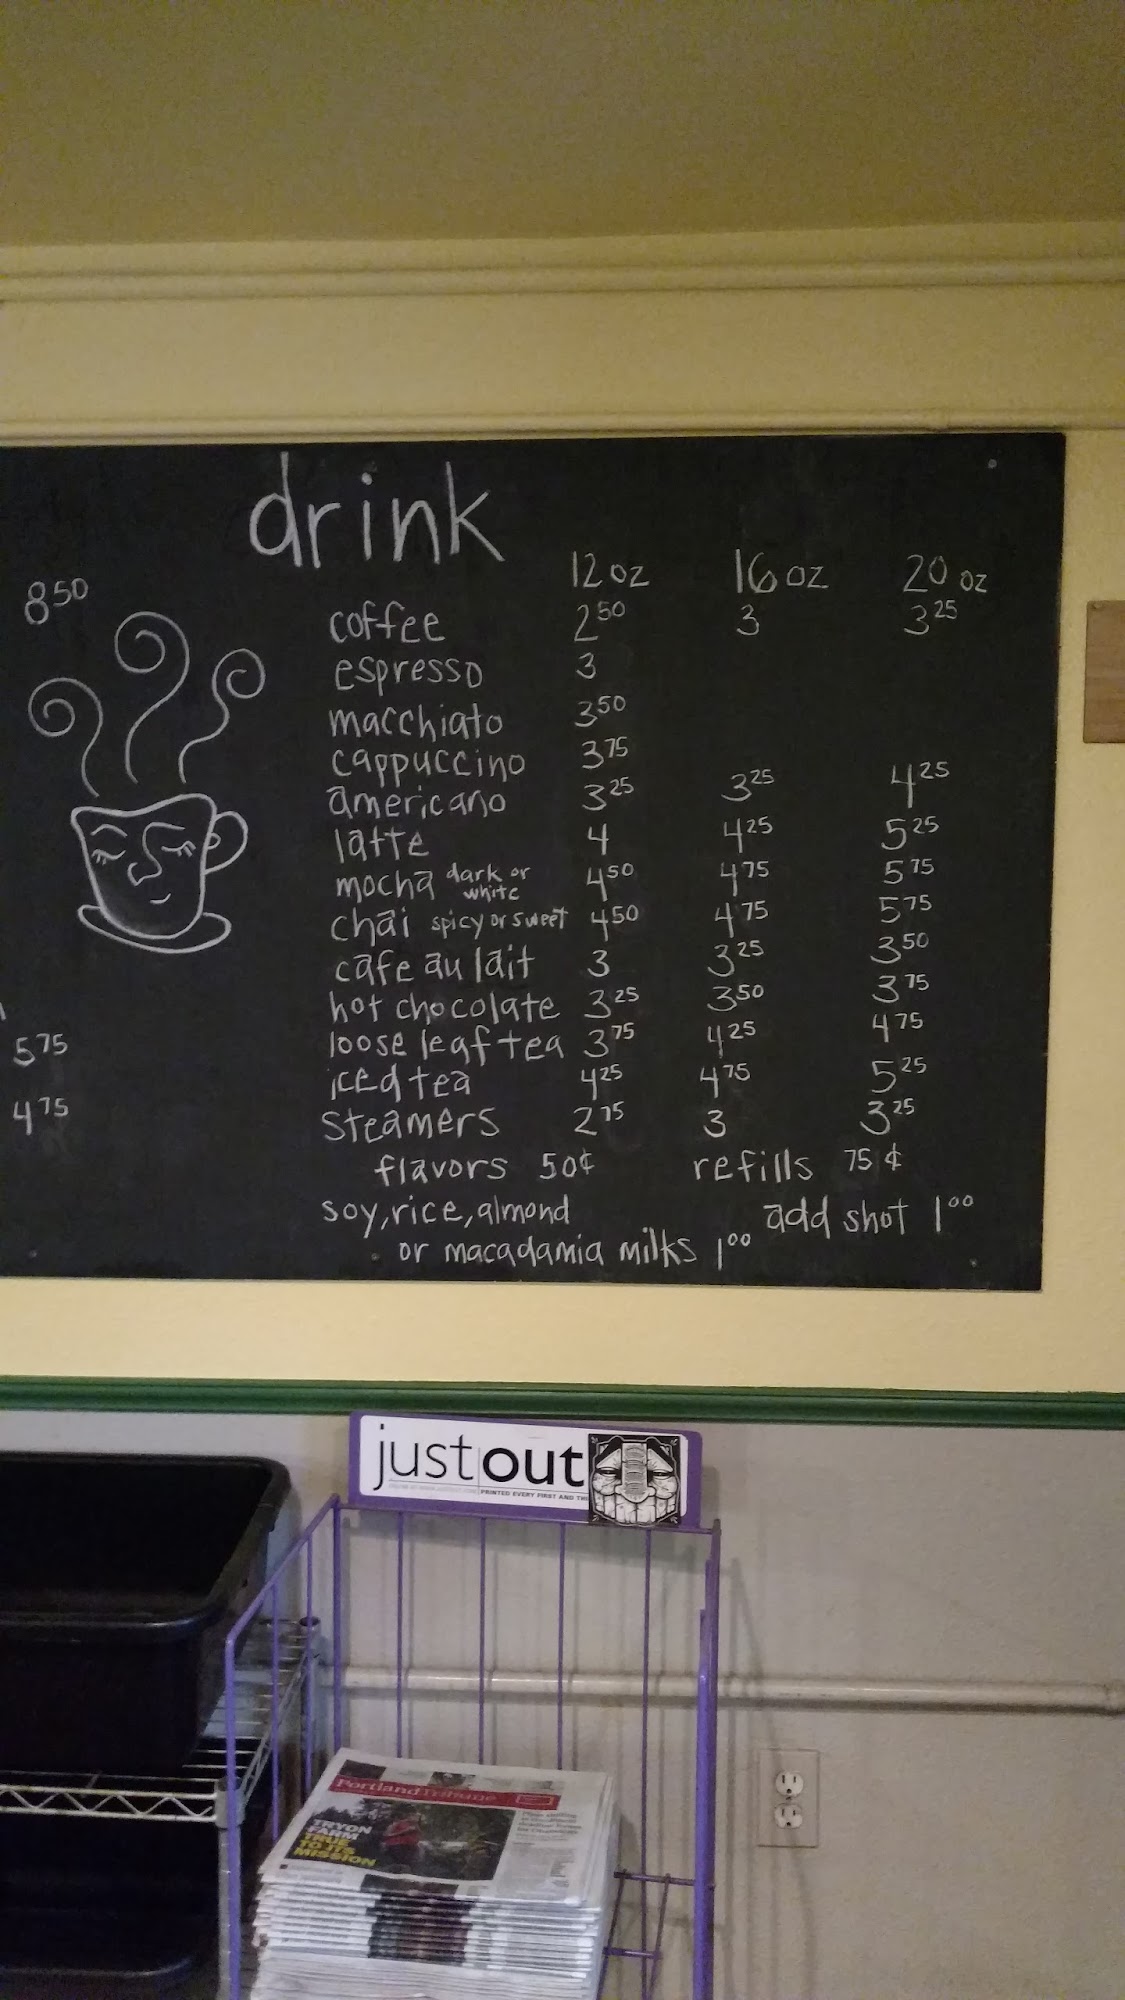 drink
12 oz 16 oz 20 oz
8 50
coffee 2 50 3 3 25
espresso 3
macchiato 3 50
cappuccino 3 75
americano 3 25 3 25 4 25
latte 4 4 25 5 25
mocha dark or white 4 50 4 75 5 75
chai spicy or sweet 4 50 4 75 5 75
cafe au lait 3 3 25 3 50
hot chocolate 3 25 3 50 3 75
5 75
loose leaf tea 3 75 4 25 4 75
iced tea 4 25 4 75 5 25
4 75
steamers 2 75 3 3 25
flavors 50¢ refills 75¢
soy, rice, almond
or macadamia milks 1 00
add shot 1 00
just out
PRINTED EVERY FIRST AND
Portland Tribune
TRYON
FARM
TRUE
TO ITS
MISSION